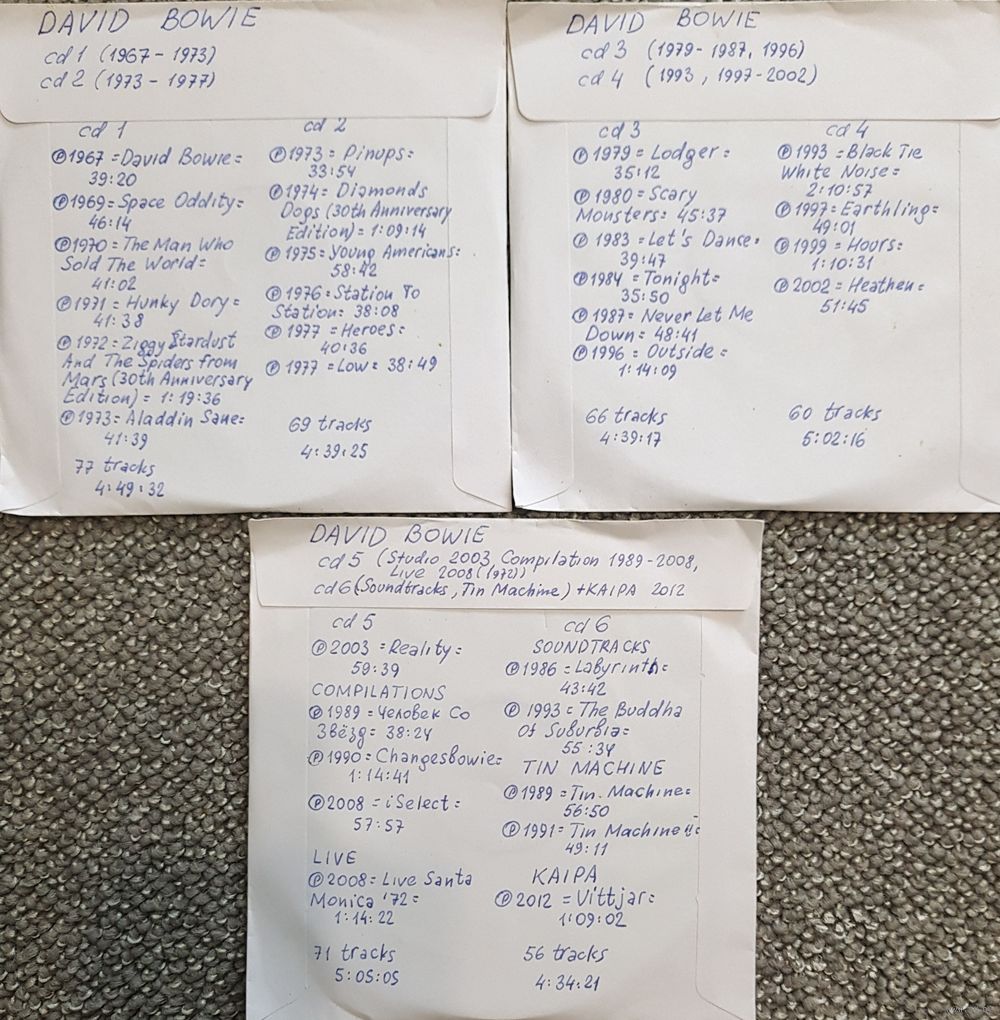 DAVID BOWIE
cd 1 (1967 - 1973)
cd 2 (1973 - 1977)
cd 1
Ⓟ1967 =David Bowie=
39:20
Ⓟ1969= Space Oddity=
46:14
Ⓟ1970= The Man Who
Sold The World=
41:02
Ⓟ1971 = Hunky Dory=
41:38
Ⓟ1972= Ziggy Stardust
And The Spiders from
Mars (30th Anniversary
Edition) = 1:19:36
Ⓟ1973= Aladdin Sane=
41:39
77 tracks
4:49:32
cd 2
Ⓟ1973 = Pinups=
33:54
Ⓟ1974= Diamonds
Dogs (30th Anniversary
Edition)= 1:09:14
Ⓟ1975= Young Americans=
58:42
Ⓟ1976=Station To
Station= 38:08
Ⓟ1977 =Heroes=
40:36
Ⓟ1977 =Low= 38:49
69 tracks
4:39:25
DAVID BOWIE
cd 3 (1979 - 1987, 1996)
cd 4 (1993, 1997-2002)
cd 3
Ⓟ1979= Lodger=
35:12
Ⓟ1980= Scary
Monsters= 45:37
Ⓟ1983 =Let's Dance=
39:47
Ⓟ1984 =Tonight=
35:50
Ⓟ1987= Never Let Me
Down= 48:41
Ⓟ1996 = Outside=
1:14:09
66 tracks
4:39:17
cd 4
Ⓟ1993=Black Tie
White Noise=
2:10:57
Ⓟ1997=Earthling=
49:01
Ⓟ1999 =Hours=
1:10:31
Ⓟ2002= Heathen=
51:45
60 tracks
5:02:16
DAVID BOWIE
cd 5 (Studio 2003, Compilation 1989-2008,
Live 2008(1972))
cd 6 (Soundtracks, Tin Machine) +KAIPA 2012
cd 5
Ⓟ2003 =Reality=
59:39
COMPILATIONS
Ⓟ1989 =Человек Со
Звёзд= 38:24
Ⓟ1990= Changesbowie=
1:14:41
Ⓟ2008 = iSelect=
57:57
LIVE
Ⓟ2008= Live Santa
Monica '72=
1:14:22
71 tracks
5:05:05
cd 6
SOUNDTRACKS
Ⓟ1986 =Labyrinth=
43:42
Ⓟ1993 = The Buddha
Of Suburbia=
55:34
TIN MACHINE
Ⓟ1989 =Tin Machine=
56:50
Ⓟ1991= Tin Machine II=
49:11
KAIPA
Ⓟ2012 =Vittjar=
1:09:02
56 tracks
4:34:21